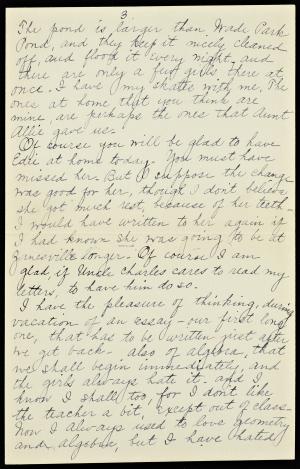 3
The pond is larger than Wade Park
Pond, and they keep it nicely cleaned
off, and flood it every night, and
there are only a few girls there at
once. I have my skates with me. The
ones at home that you think are
mine, are perhaps the ones that Aunt
Allie gave us.
Of course you will be glad to have
Edie at home to-day. You must have
missed her. But I suppose the change
was good for her, though I don't believe
she got much rest, because of her teeth.
I would have written to her again if
I had known she was going to be at
Zanesville longer. Of course I am
glad, if Uncle Charles cares to read my
letters, to have him do so.
I have the pleasure of thinking, during
vacation of an essay - our first long
one, that has to be written just after
we get back - also of algebra, that
we shall begin immediately, and
the girls always hate it. and I
know I shall too, for I don't like
the teacher a bit, except out of class -
Now I always used to love geometry
and algebra, but I have hated